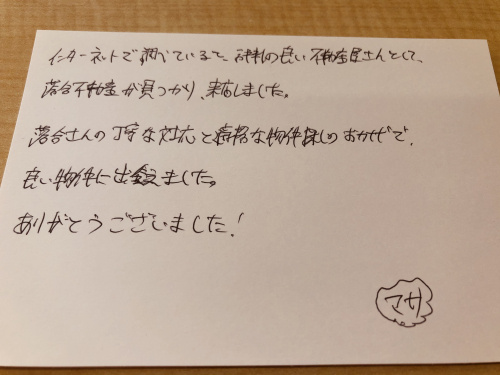 インターネットで調べていると、評判の良い不動産屋さんとして、
落合不動産が見つかり、来店しました。
落合さんの丁寧な対応と  な物件探しのおかげで、
良い物件に出会えました。
ありがとうございました!
マサ